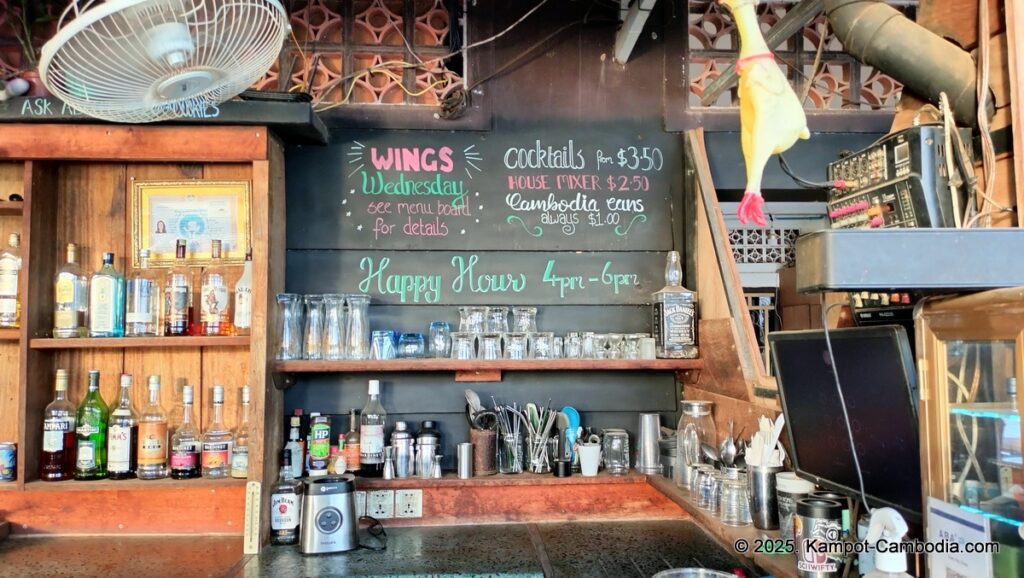 ASK
WINGS
Wednesday
see menu board
for details
Cocktails from $3.50
HOUSE MIXER $2.50
Cambodia cans
always $1.00
Happy Hour 4pm - 6pm
JACK DANIEL'S
CAMPARI
HP
JIM BEAM
SCHWIFTY
© 2025. Kampot-Cambodia.com